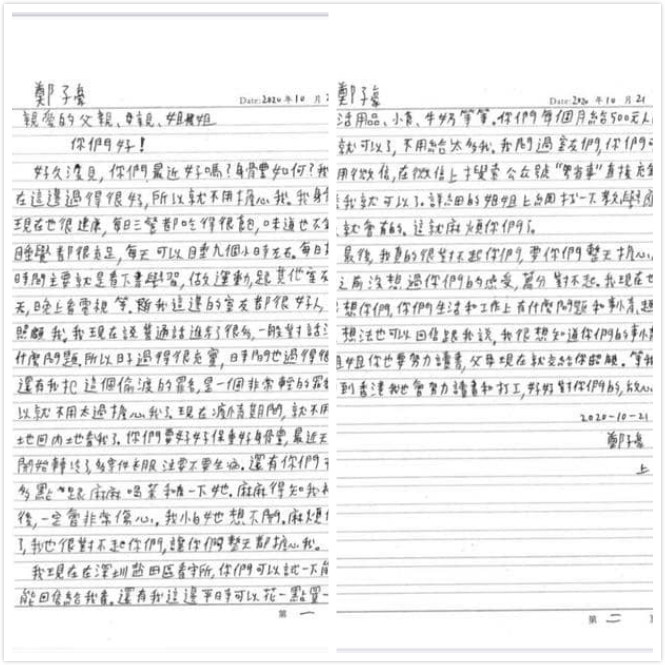 鄭子豪
Date: 2020 年 10 月 2
親愛的父親、母親、姐姐
你們好!
好久沒見,你們最近好嗎?身體如何?我
在這邊過得很好,所以就不用擔心我。我身
現在也很健康,每日三餐都吃得很飽,味道也不
睡覺都很充足,每天可以睡九個小時左右。每日
時間主要就是看下書學習,做運動,跟其他室友
天,晚上看電視等。所我這邊的室友都很好人
照顧我。我現在說普通話進步了很多,一般對話
什麼問題。所以日子過得很充實,日時間也過得很
還有我犯這個偷渡的罪名,是一個非常輕的罪
以就不用太過擔心我了。現在疫情期間,就不用
地回內地看我了。你們要好好保重好身體,最近天
開始轉涼了多穿件衣服注意不要生病。還有你們
多點跟麻麻喝茶和一下她。麻麻得知我
後,一定會非常傷心。我怕她想不開。麻煩你
了,我也很對不起你們,讓你們整天都擔心我。
我現在在深圳鹽田區看守所,你們可以試一下
能回信給我看。還有我這邊平時可以花一點買一
第 一
鄭子豪
Date: 2020 年 10 月 21
活用品、小食、牛奶等等。你們每個月給500元人
就可以了,不用給太多我。我問過室友們,你們
用微信,在微信上搜索公众號"
我就可以了。詳細的姐姐上網打一下教學
就會有的。這就麻煩你們了。
最後,我真的很對不起你們,要你們整天擔心,
之前沒想過你們的感受,萬分對不起。我現在也
想你們,你們生活和工作上有什麼問題和事情,
想法也可以回信跟我說。我很想知道你們的事情
姐姐你也要努力讀書,父母現在就交給你照顧。等我
到香港我也會努力讀書和打工,好好對你們的,放心
2020-10-21
鄭子豪
上
第 二